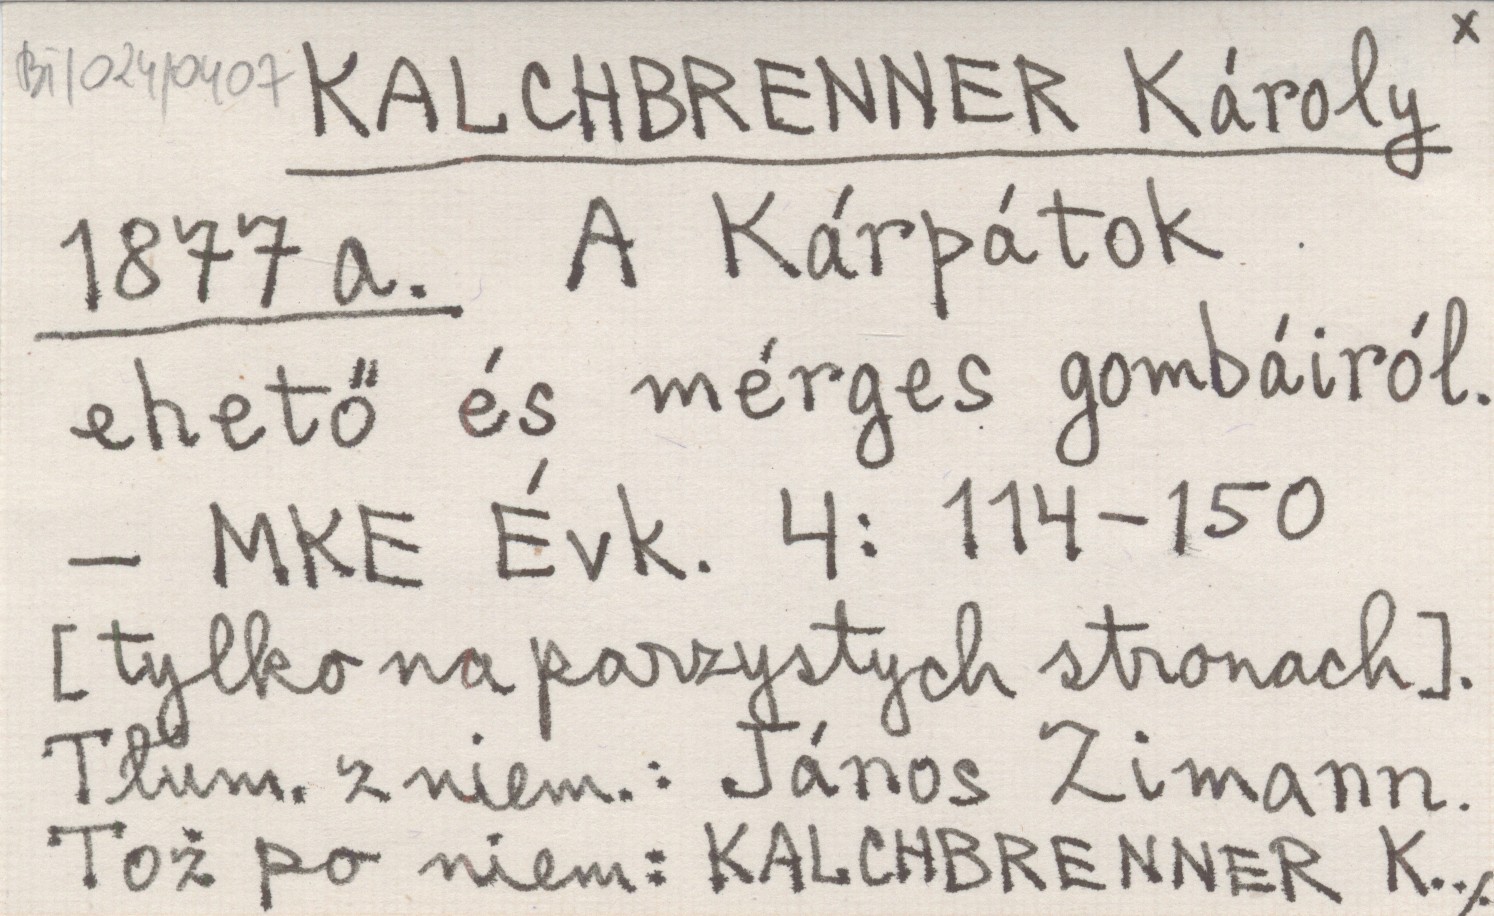 x
Bi/024/0407 KALCHBRENNER Károly
1877a. A Kárpátok
ehető és mérges gombáiról.
— MKE Évk. 4: 114–150
[tylko na parzystych stronach].
Tłum. z niem.: János Zimann.
Toż po niem: KALCHBRENNER K../.